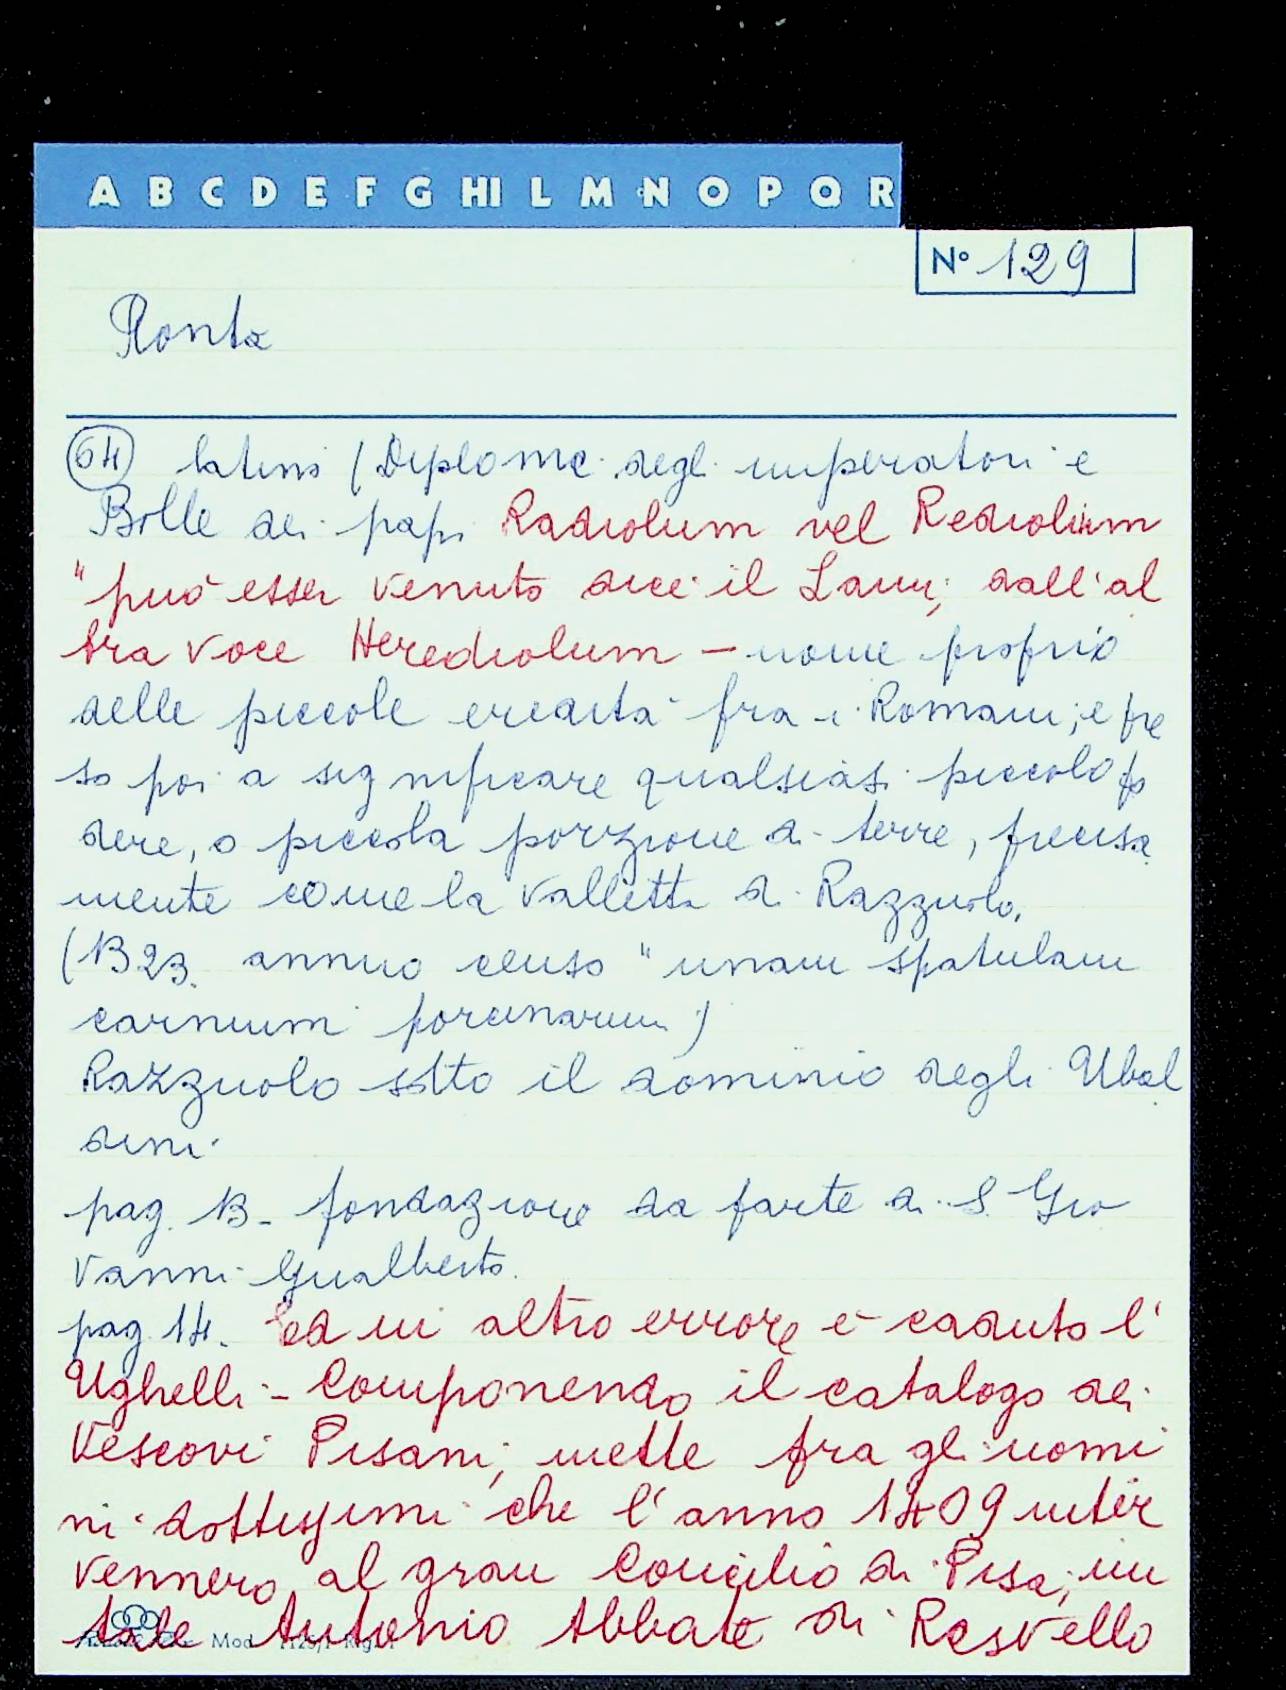 A B C D E F G HI L M N O P Q R
N° 129
Ronta
64 latini (Diplome degli imperatori e
Bolle dei papi Radiolum vel Rediolum
"può esser venuto dice il Lami, dall'al
tra voce Herediolum – nome proprio
delle piccole eredità fra i Romani; e pre
so poi a significare qualsiasi piccolo po
dere, o piccola porzione di terre, precisa
mente come la valletta di Razzuolo.
(B23. annuo censo "unam spatulam
carnium porcinarum)
Razzuolo sotto il dominio degli Ubal
dini
pag. 13 - fondazione da parte di S. Gio
vanni Gualberto.
pag 14. Ed in altro errore è caduto l'
Ughelli - Componendo il catalogo dei
Vescovi Pisani, mette fra gli uomi
ni dottissimi che l'anno 1409 inter
vennero al gran Concilio di Pisa, un
tale Antonio Abbate di Resvello
Mod.